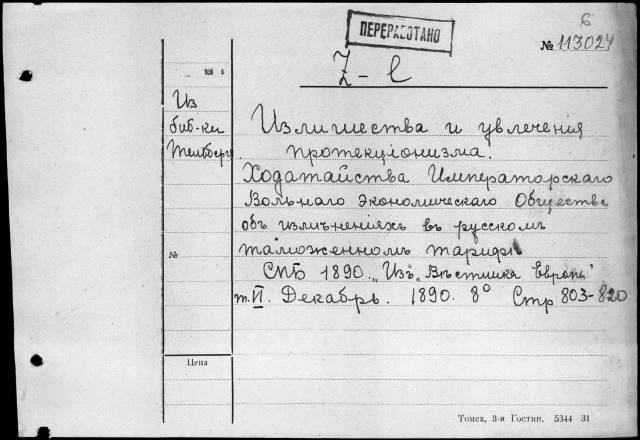 6
ПЕРЕРАБОТАНО
№ 113024
Z-e
Из
биб-ки
Излишества и увлечения
протекцiонизма.
Ходатайства Императорскаго
Вольнаго Экономическаго Общества
объ измѣненiяхъ въ русскомъ
таможенномъ тарифѣ
СПБ 1890. „Изъ „Вѣстника Европы"
т. VI. Декабрь. 1890. 8° Стр 803-820
№
Цена
Томск, 3-я Гостип. 5344 31